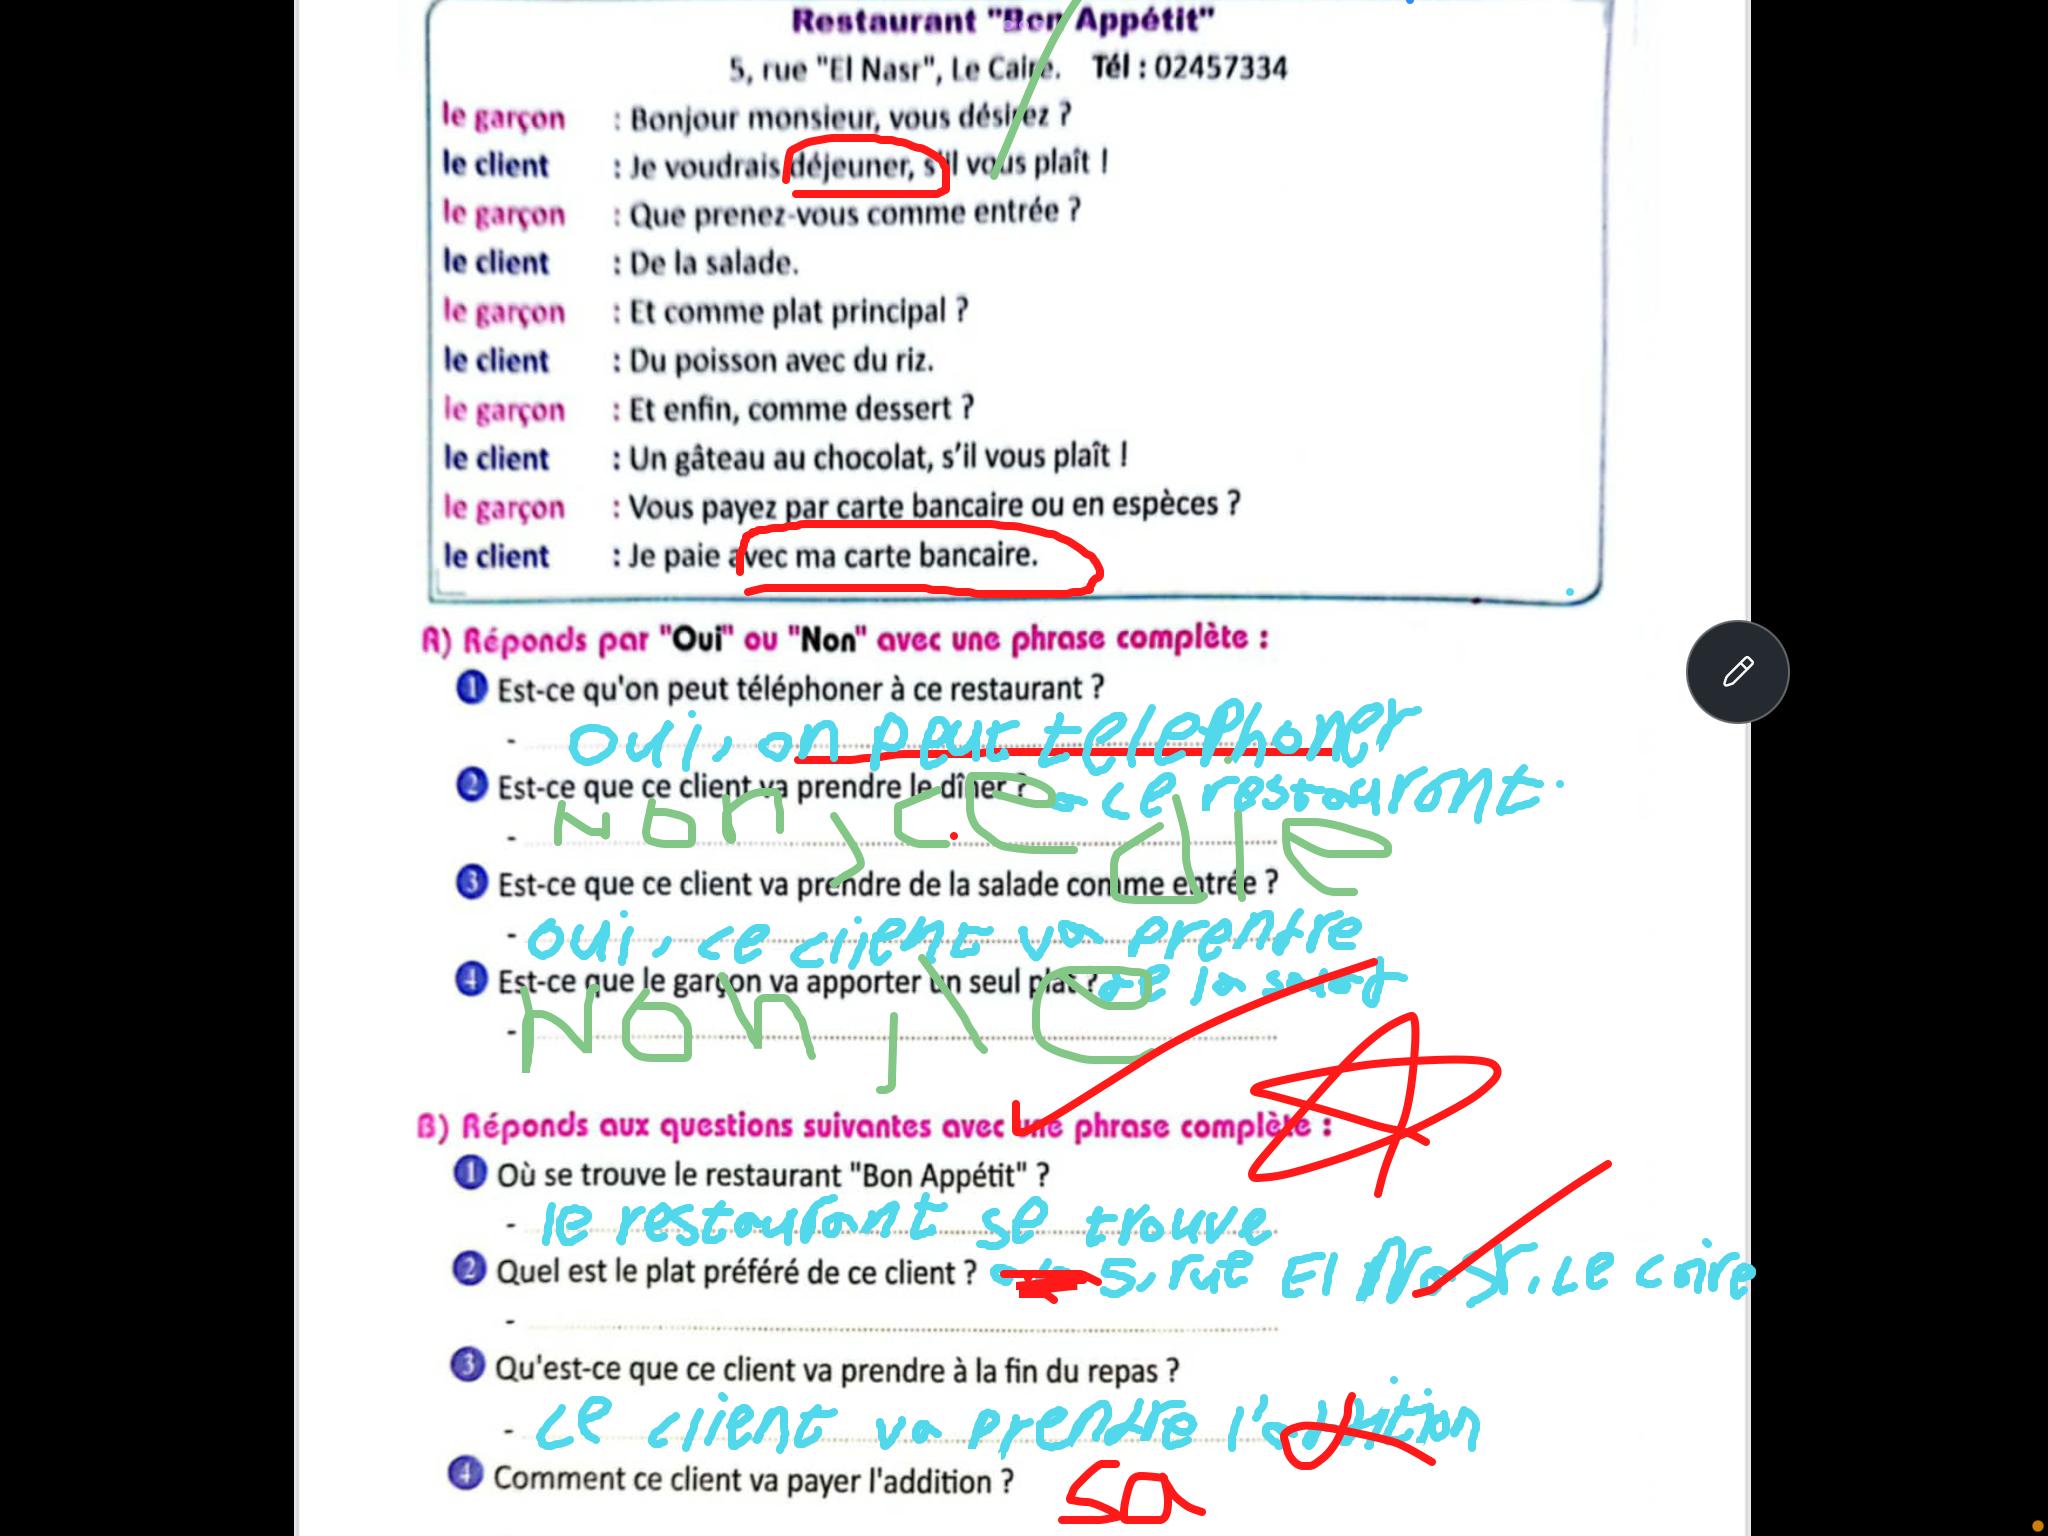 Restaurant "Bon Appétit"
5, rue "El Nasr", Le Caire. Tél : 02457334
le garçon : Bonjour monsieur, vous désirez ?
le client : Je voudrais déjeuner, s'il vous plaît !
le garçon : Que prenez-vous comme entrée ?
le client : De la salade.
le garçon : Et comme plat principal ?
le client : Du poisson avec du riz.
le garçon : Et enfin, comme dessert ?
le client : Un gâteau au chocolat, s'il vous plaît !
le garçon : Vous payez par carte bancaire ou en espèces ?
le client : Je paie avec ma carte bancaire.
A) Réponds par "Oui" ou "Non" avec une phrase complète :
1 Est-ce qu'on peut téléphoner à ce restaurant ?
- Oui, on peut telephoner
2 Est-ce que ce client va prendre le dîner ? a ce restaurant.
- Non, ce
3 Est-ce que ce client va prendre de la salade comme entrée ?
- Oui, ce client va prendre
4 Est-ce que le garçon va apporter un seul plat ? de la
- Non, le
B) Réponds aux questions suivantes avec une phrase complète :
1 Où se trouve le restaurant "Bon Appétit" ?
- le restaurant se trouve
2 Quel est le plat préféré de ce client ? 5, rue El Nasr, Le caire
-
3 Qu'est-ce que ce client va prendre à la fin du repas ?
- Le client va prendre
4 Comment ce client va payer l'addition ? sa